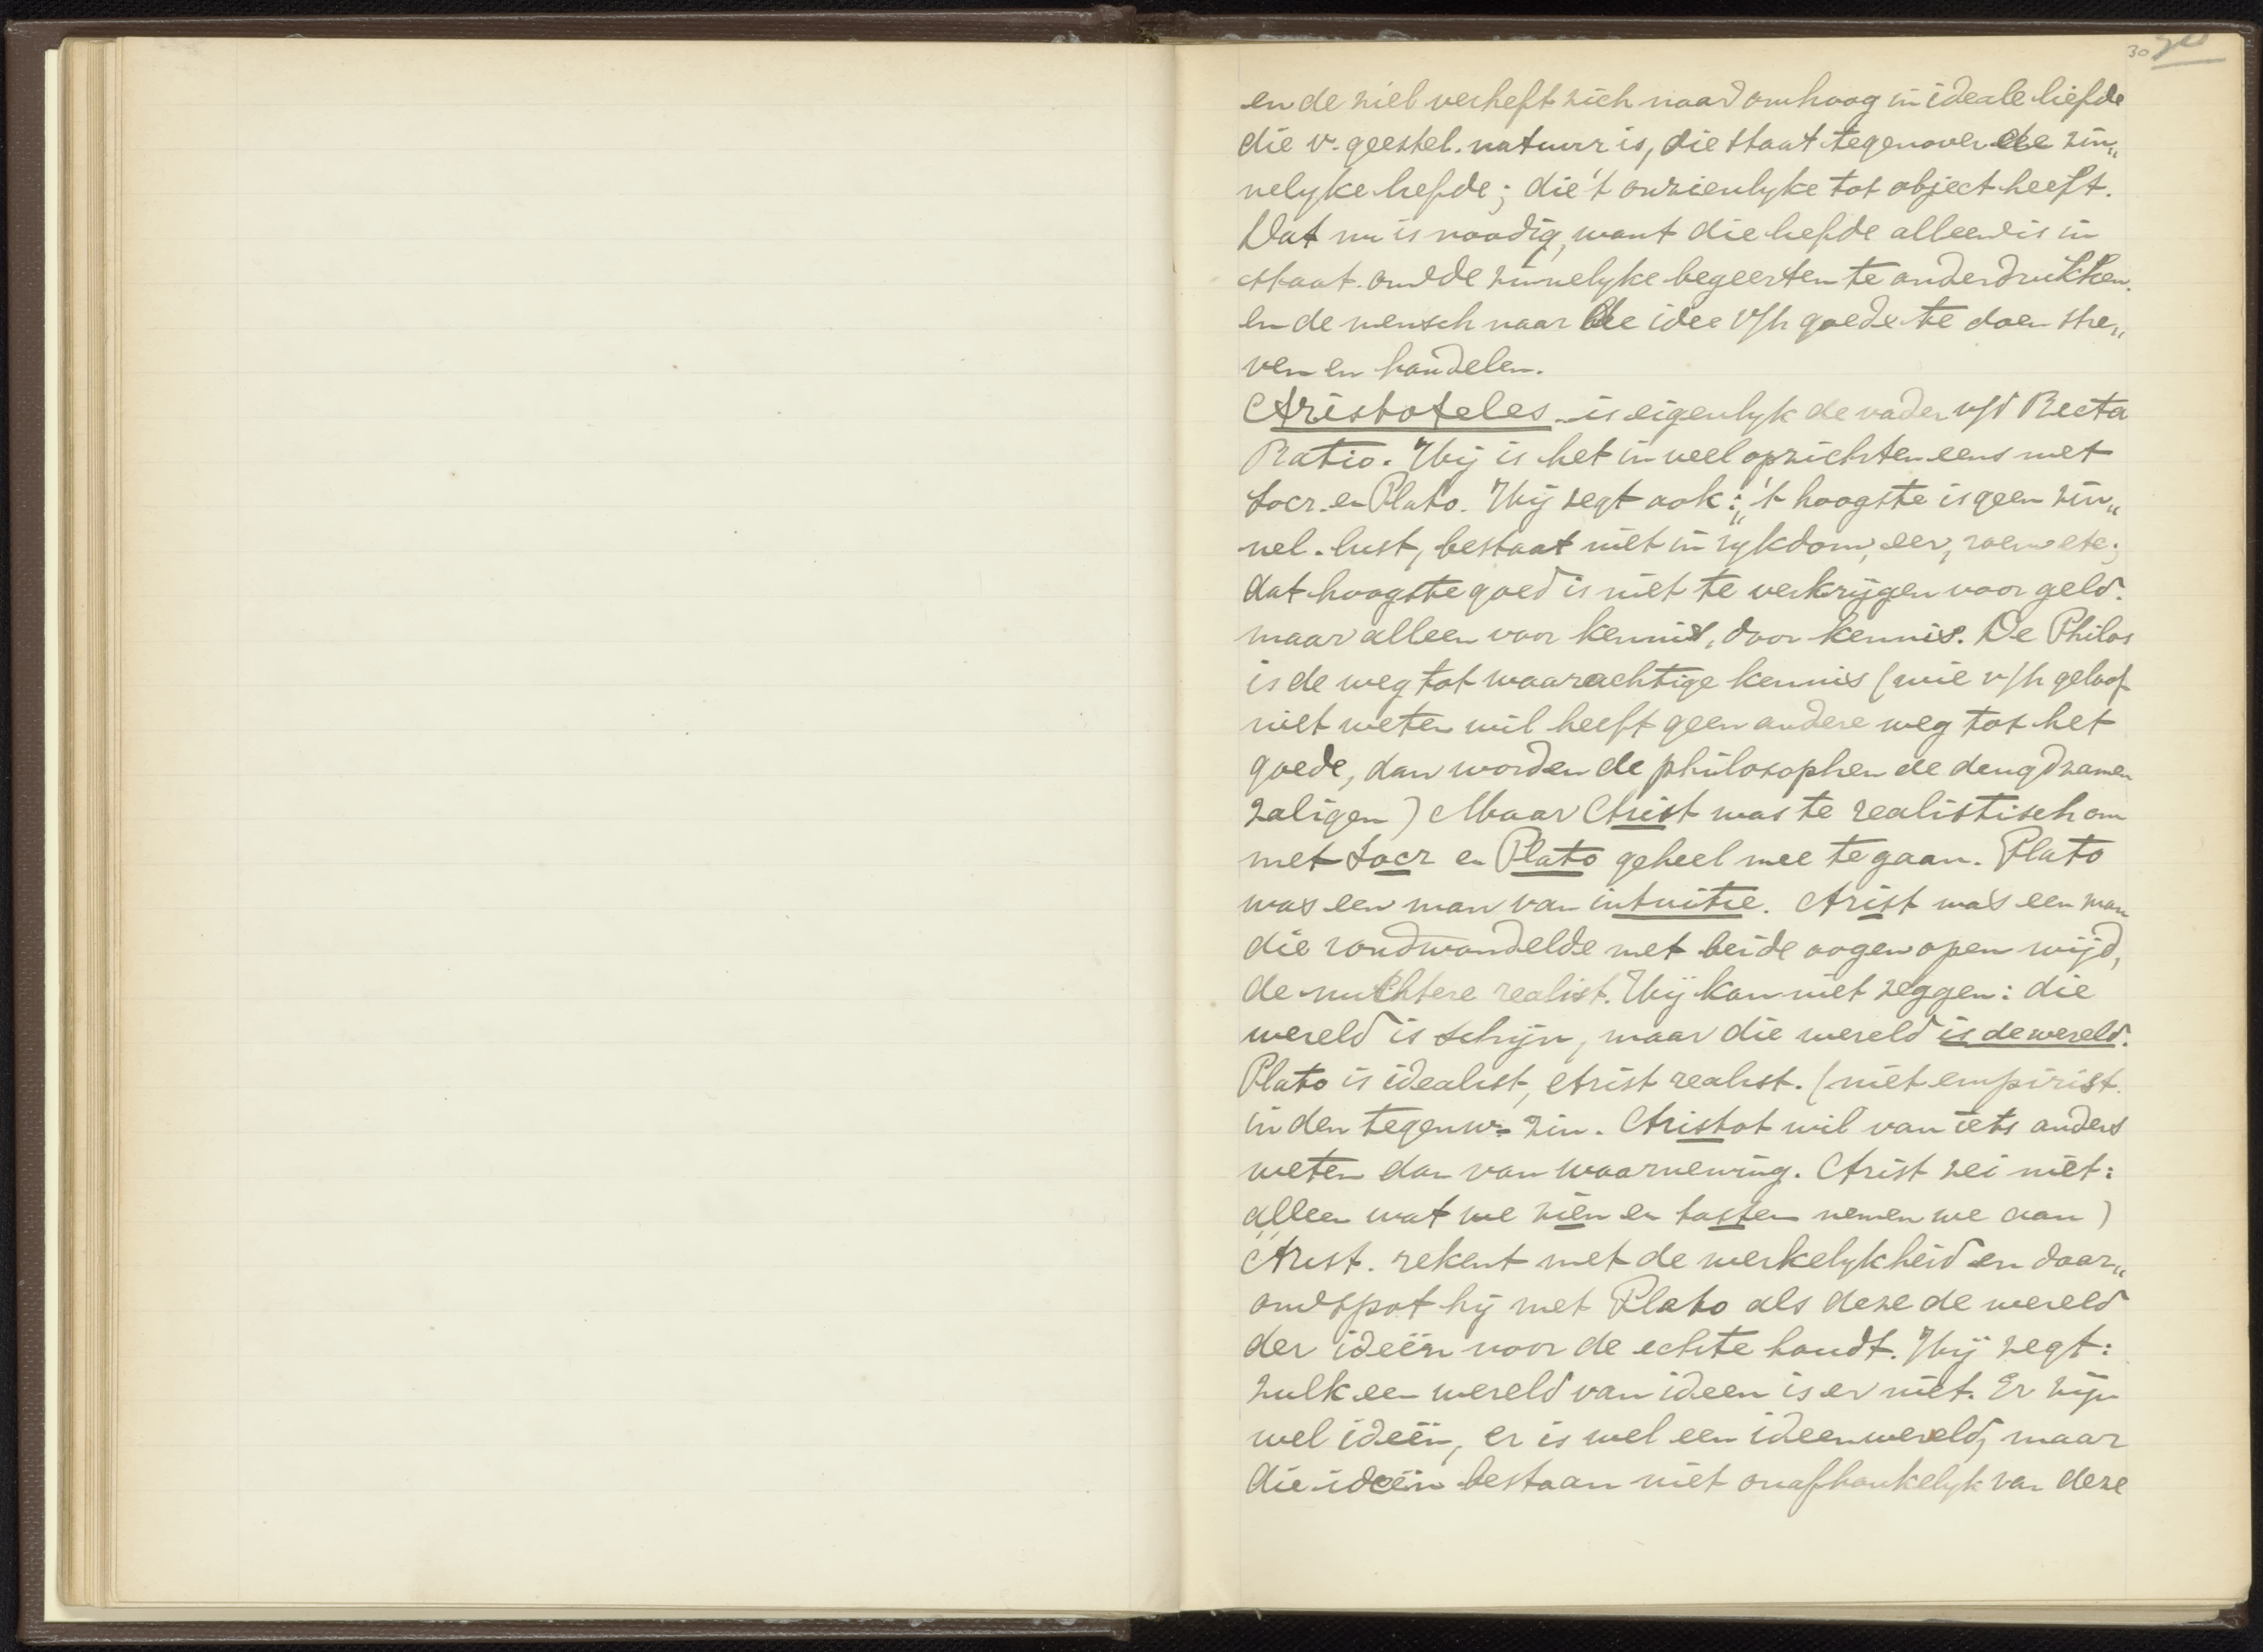 30
en de ziel verheft zich naar omhoog in ideale liefde
die v. geestel. natuur is, die staat tegenover de zin„
nelyke liefde; die 't onzienlyke tot object heeft.
Dat nu is noodig, want die liefde alleen is in
staat om de zinnelyke begeerten te onderdrukken.
en de mensch naar de idee v/h goede te doen stre„
ven en handelen.
Aristoteles is eigenlyk de vader v/d Recta
Ratio. Hij is het in veel opzichten eens met
Socr. en Plato. Hij zegt ook: „'t hoogste is geen zin„
nel. lust, bestaat niet in rykdom, eer, roem etc;
dat hoogste goed is niet te verkrijgen voor geld.
maar alleen voor kennis, door kennis. De Philos
is de weg tot waarachtige kennis (wie v/h geloof
niet weten wil heeft geen andere weg tot het
goede, dan worden de philosophen de deugdzamen
zaligen) Maar Arist was te realistisch om
met Socr en Plato geheel mee te gaan. Plato
was een man van intuitie. Arist was een man
die rondwandelde met beide oogen open wijd,
de nuchtere realist. Hij kan niet zeggen: die
wereld is schijn, maar die wereld is de wereld.
Plato is idealist, Arist realist. (niet empirist
in den tegenw. zin. Aristot wil van iets anders
weten dan van waarneming. Arist zei niet:
alleen wat we zien en tasten nemen we aan)
Arist. rekent met de werkelykheid en daar„
om spot hij met Plato als deze de wereld
der ideën voor de echte houdt. Hij zegt:
zulk een wereld van ideen is er niet. Er zijn
wel ideën, er is wel een ideenwereld, maar
die ideën bestaan niet onafhankelyk van deze